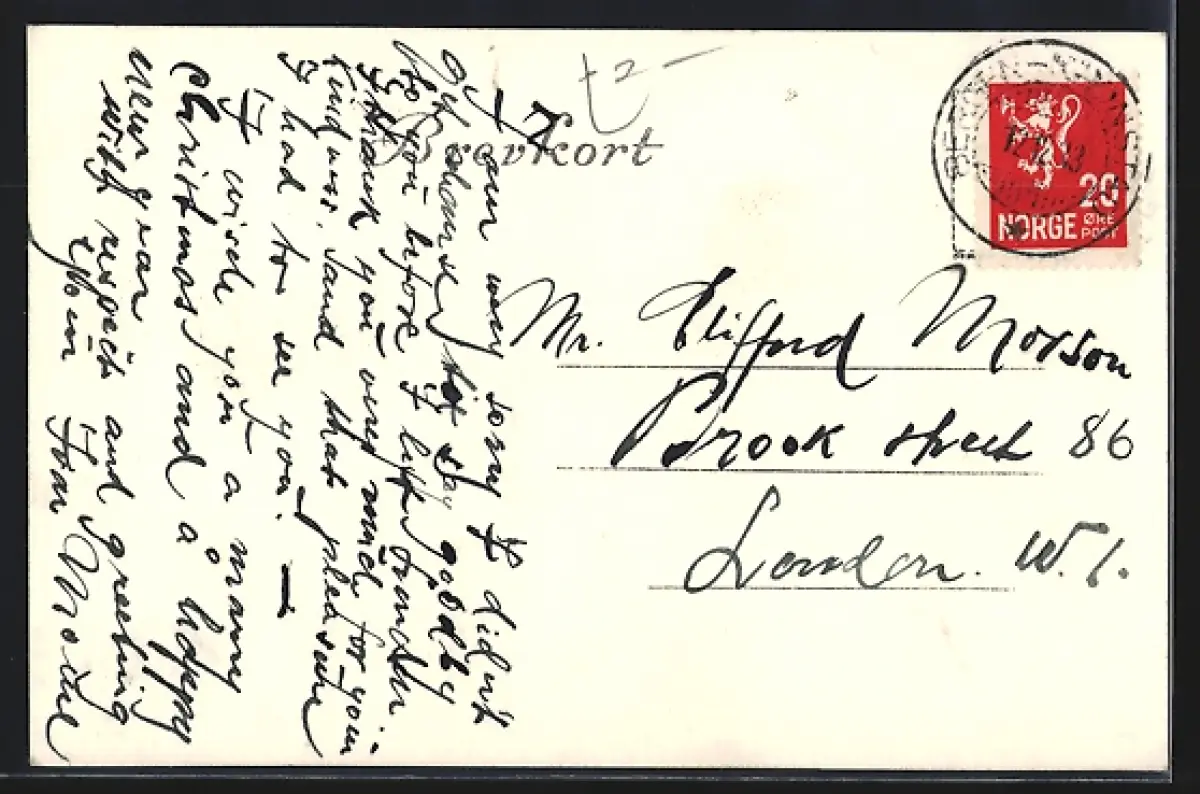 t 2 -
Brevkort
BERGEN
17.12.
20
NORGE ØRE
POST
Mr. Clifford Morson
Brook street 86
London. W. 1.
I am very sorry I did'nt
to say goodby
to you before I left London.
I thank you very much for your
kindness, and that pleasure
I had to see you. —
I wish you a many
Christmas and a happy
new year
with respect and greeting
Your